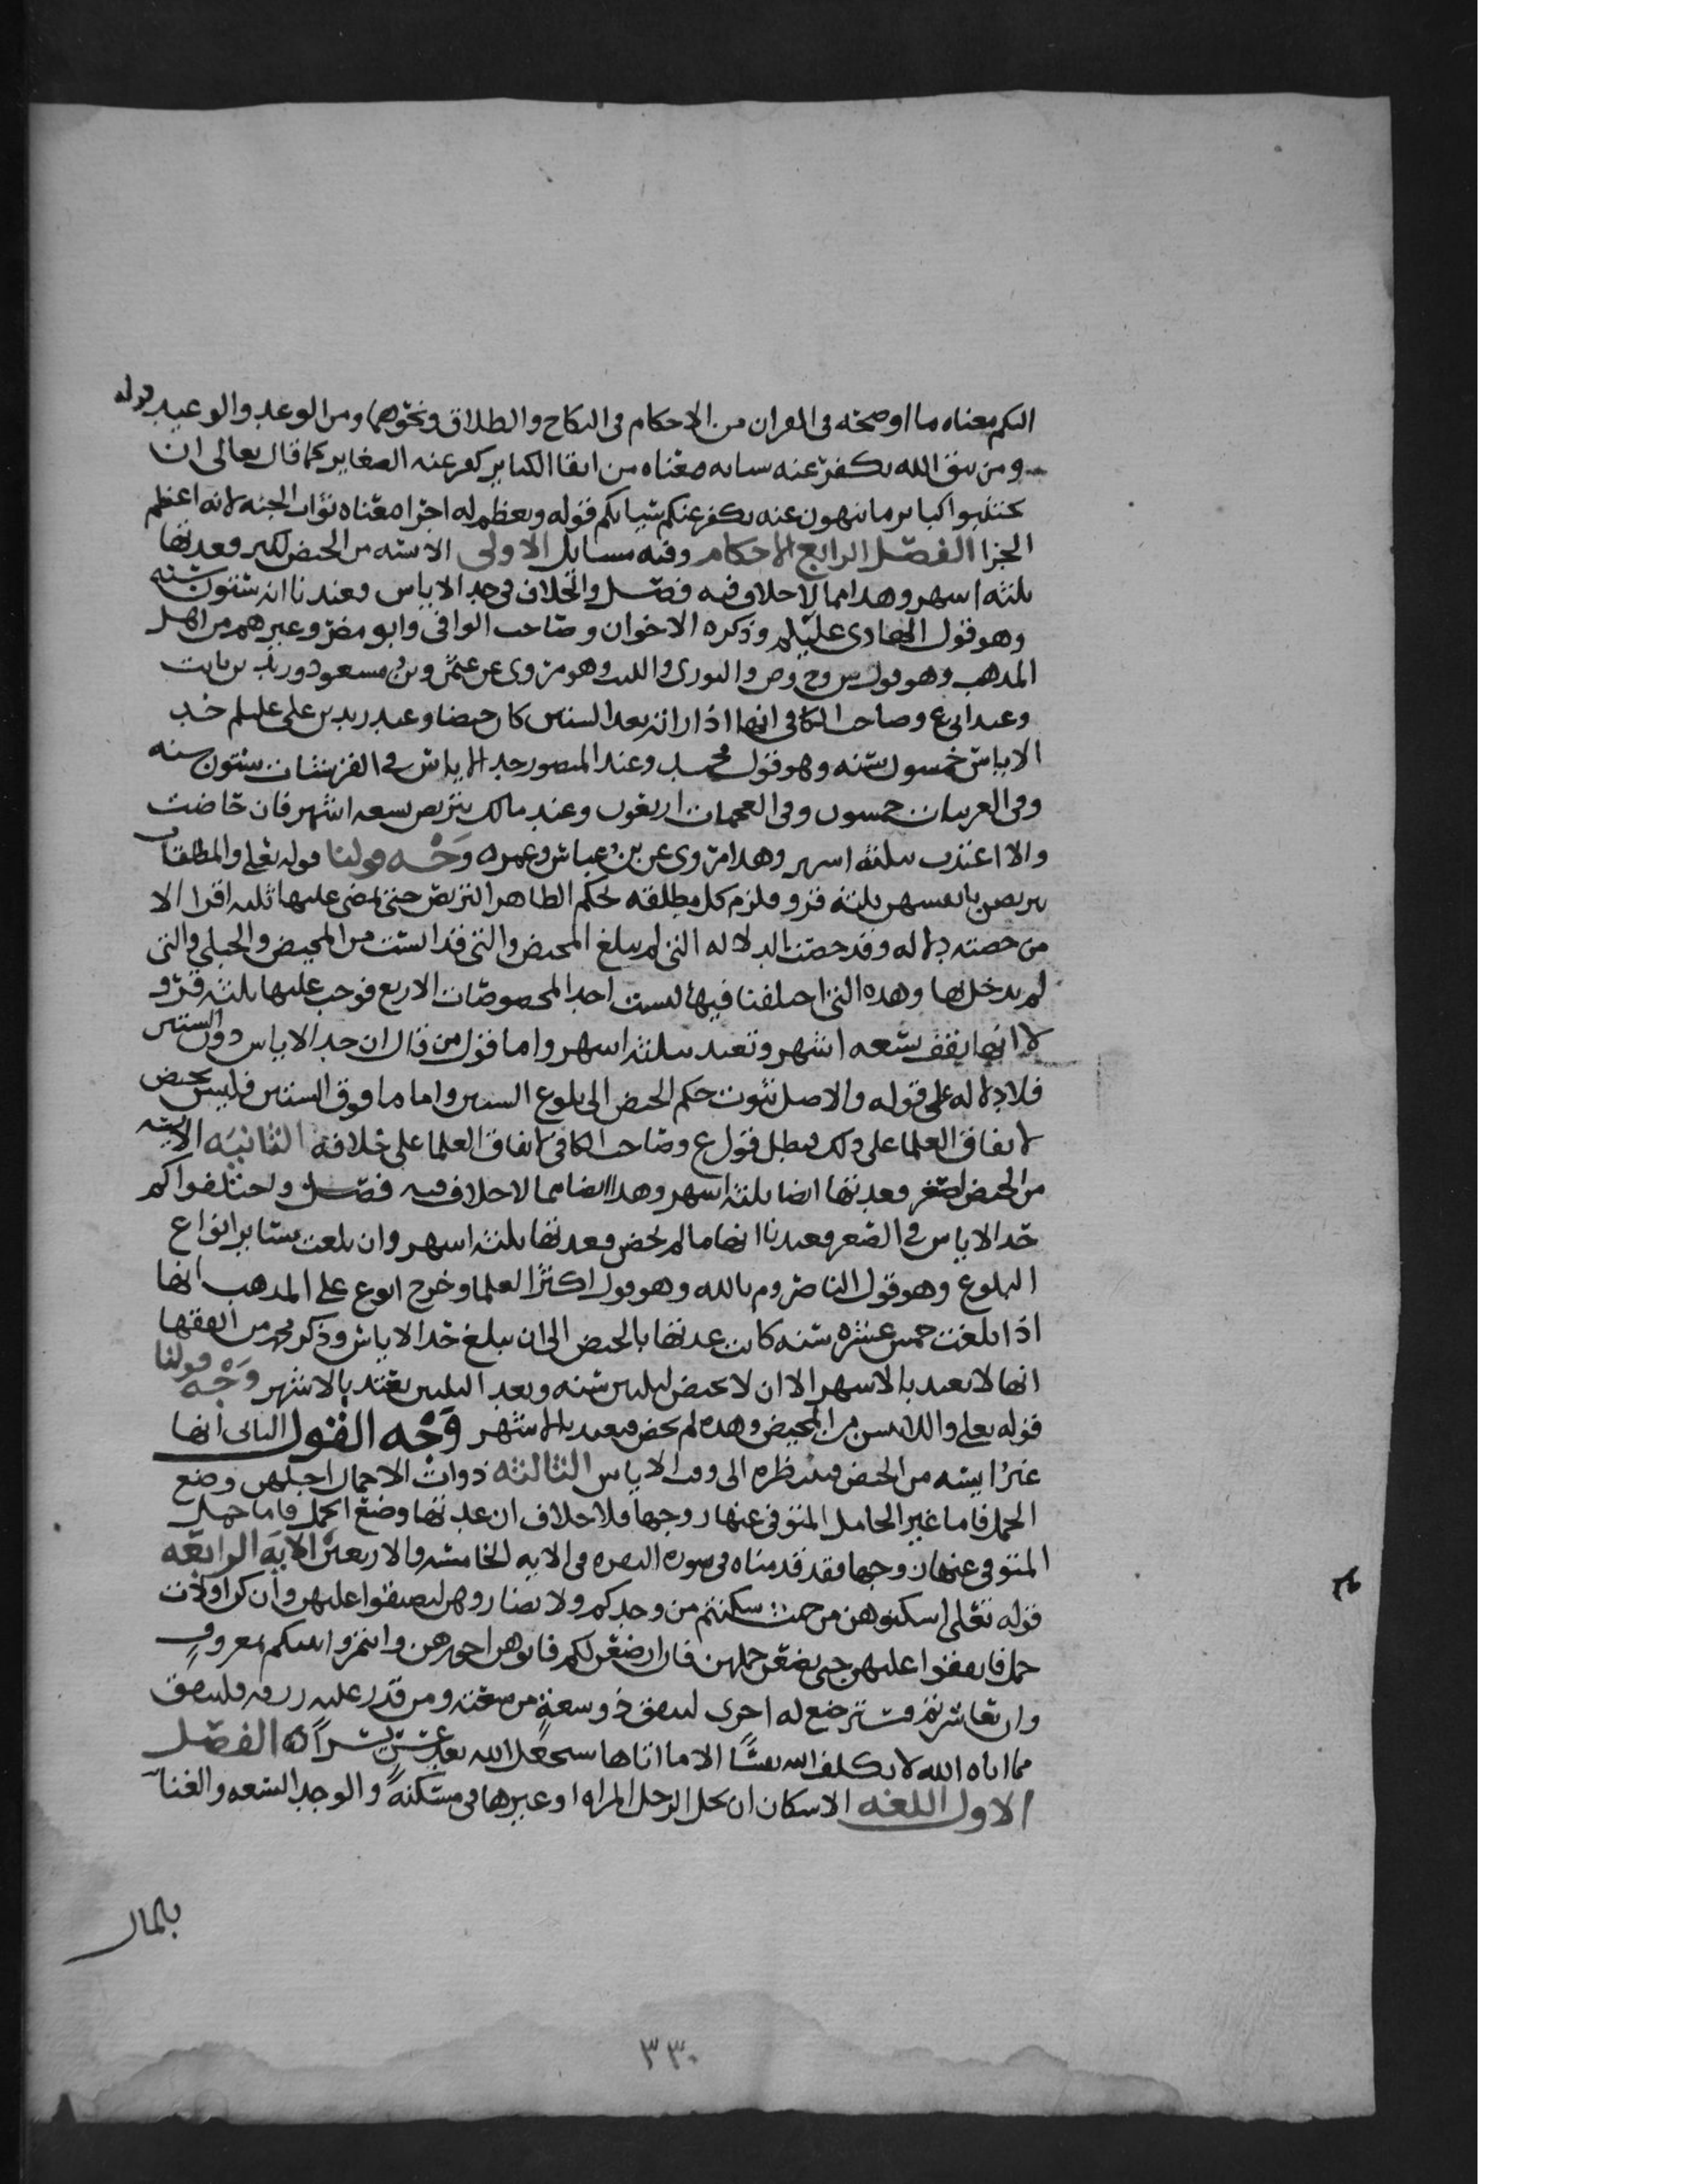 اليكم معناه ما اوضحته في القران من الاحكام في النكاح والطلاق ونحوهما ومن الوعد والوعيد قوله
ومن يتق الله يكفر عنه سياته معناه من اتقا الكباير كفر عنه الصغاير كما قال تعالى ان
تجتنبوا كباير ما تنهون عنه يكفر عنكم سياتكم قوله ويعظم له اجرا معناه ثواب الجنه لانه اعظم
الجزا الفصل الرابع الاحكام وفيه مسايل الاولى الايسه من الحيض لكبر وعدتها
ثلثه اشهر وهذا مما لا خلاف فيه فصل والخلاف في حد الاياس وعندنا انه ستون سنه
وهو قول الهادى عليلم وذكره الاخوان وصاحب الوافي وابو مضر وغيرهم من اهل
المذهب وهو قول س وح وص والثورى والليث وهو مروى عن عثمن وبن مسعود وزيد بن ثابت
وعند ابى ع وصاحب الكافي انها اذا راته بعد الستين كان حيضا وعند زيد بن على عليلم حد
الاياس خمسون سنه وهو قول محمد وعند المنصور حد الاياس في القرشيات ستون سنه
وفي العربيات خمسون وفي العجميات اربعون وعند مالك تتربص تسعه اشهر فان حاضت
والا اعتدت بثلثه اشهر وهذا مروى عن بن عباس وعمر وَجْه قولنا قوله تعلى والمطلقات
يتربصن بانفسهن ثلثه قرو فلزم كل مطلقه بحكم الظاهر التربص حتى تمضى عليها ثلثه اقرا الا
من خصته دلاله وقد خصت الدلاله التي لم تبلغ المحيض والتي قد ايست من المحيض والحبلى والتي
لم يدخل بها وهذه التي اختلفنا فيها ليست احد المخصوصات الاربع فوجب عليها ثلثه قرو
لا انها تقف تسعه اشهر وتعتد بثلثه اشهر واما قول من قال ان حد الاياس دون الستين
فلا دلاله على قوله والاصل ثبوت حكم الحيض الى بلوغ الستين واما ما فوق الستين فليس بحيض
لاتفاق العلما على ذلك فبطل قول ع وصاحب الكافي لاتفاق العلما على خلافه الثانيه الايسه
من الحيض لصغر وعدتها ايضا ثلثه اشهر وهذا ايضا مما لا خلاف فيه فصل واختلفوا كم
حد الاياس في الصغر فعندنا انها ما لم تحض فعدتها ثلثه اشهر وان بلغت بساير انواع
البلوغ وهو قول الناصر وم بالله وهو قول اكثر العلما وخرج ابو ع على المذهب انها
اذا بلغت خمس عشره سنه كانت عدتها بالحيض الى ان تبلغ حد الاياس وذكر من الفقها
انها لا تعتد بالاشهر الا ان لا تحيض لثلثين سنه وبعد الثلثين تعتد بالاشهر وَجْه قولنا
قوله تعلى واللائى يسن من المحيض وهذه لم تحض فتعتد بالاشهر وَجْه القول الثاني انها
غير ايسه من الحيض فتنتظره الى وقت الاياس الثالثه ذوات الاحمال اجلهن وضع
الحمل فاما غير الحامل المتوفى عنها زوجها فلا خلاف ان عدتها وضع الحمل فاما حمل
المتوفى عنها زوجها فقد قدمناه في سوره البقره في الايه الخامسه والاربعين الايه الرابعه
قوله تعلى اسكنوهن من حيث سكنتم من وجدكم ولا تضاروهن لتضيقوا عليهن وان كن اولات
حمل فانفقوا عليهن حتى يضعن حملهن فان ارضعن لكم فاتوهن اجورهن واتمروا بينكم بمعروفٍ
وان تعاسرتم فسترضع له اخرى لينفق ذو سعةٍ من سعته ومن قدر عليه رزقه فلينفق
مما اتاه الله لا يكلف الله نفسًا الا ما اتاها سيجعل الله بعد عسرٍ يسراً ه الفصل
الاول اللغه الاسكان ان يحل الرجل المراه او غيرها في مسكنه والوجد السعه والغنا
بالمال
٣٣٠